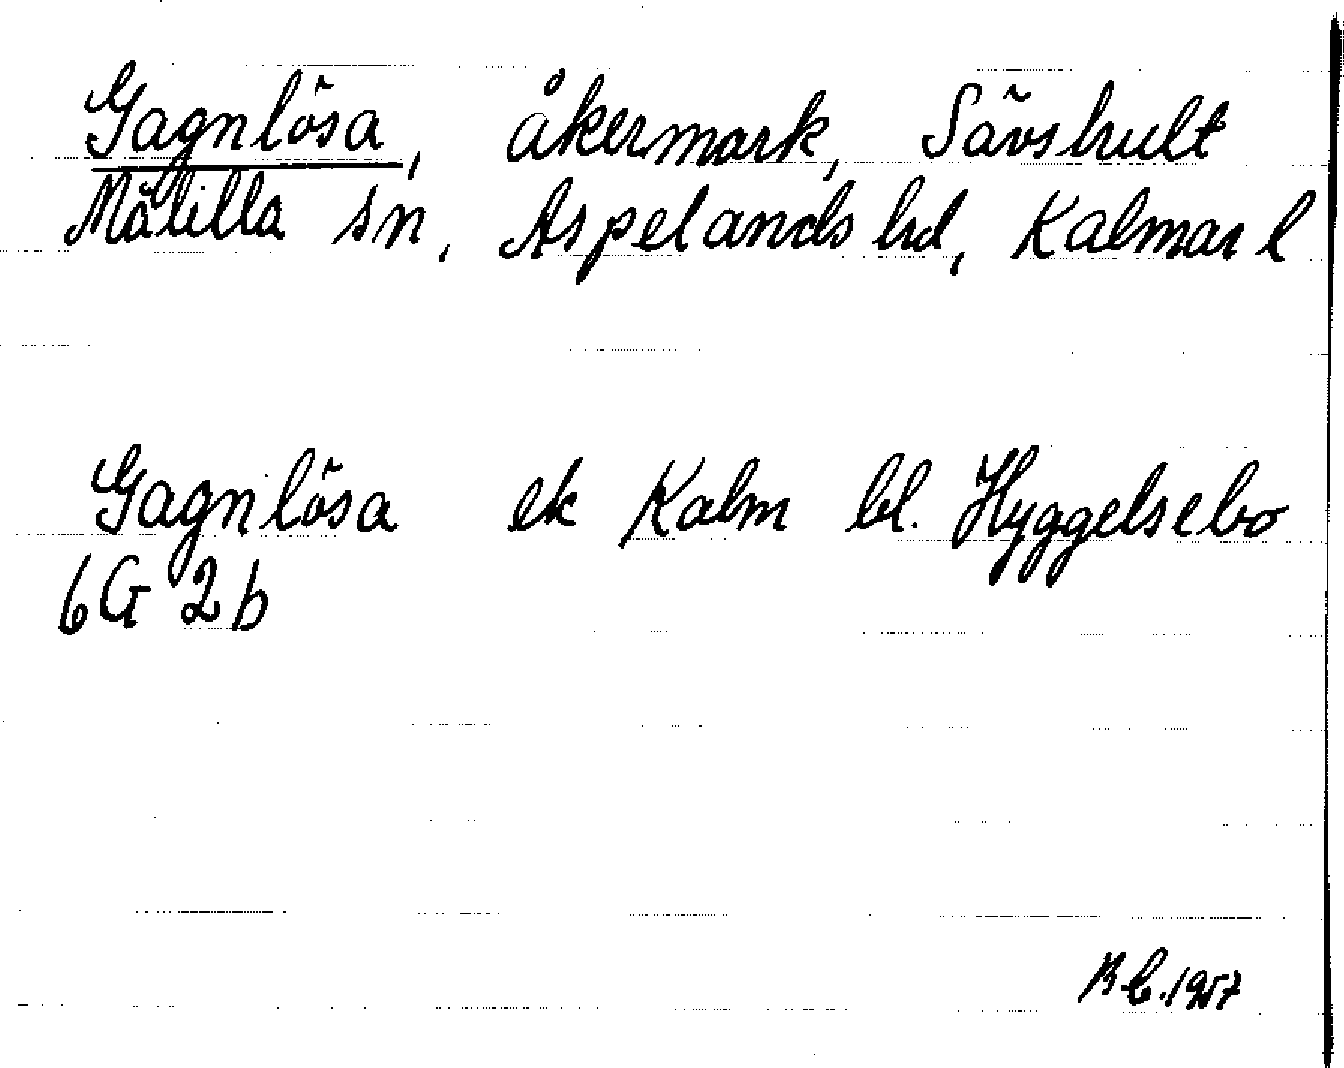 Gagnlösa, åkermark, Sävshult
Målilla sn, Aspelands hd, Kalmar l
Gagnlösa ek Kalm bl. Hyggelsebo
6G 2b
1957